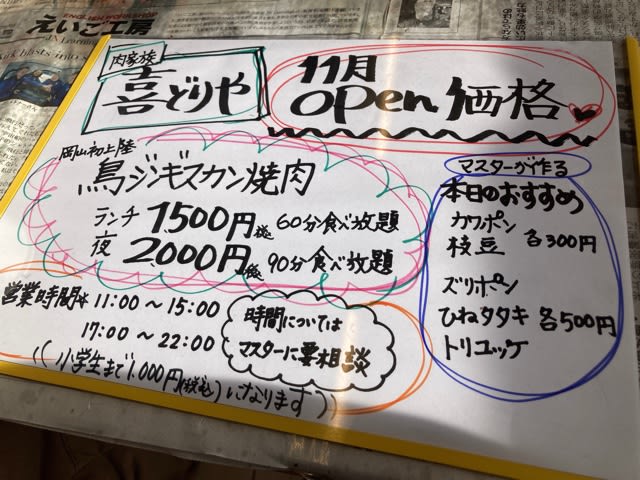 えいご工房
肉家族
喜どりや
11月
open価格
岡山初上陸
鳥ジンギスカン焼肉
ランチ 1500円 60分食べ放題
夜 2000円 90分食べ放題
マスターが作る
本日のおすすめ
カワポン
枝豆 各300円
ズリポン
ひねタタキ 各500円
トリユッケ
営業時間 11:00〜15:00
17:00〜22:00
時間については
マスターに要相談
((小学生まで1,000円(税込)になります))